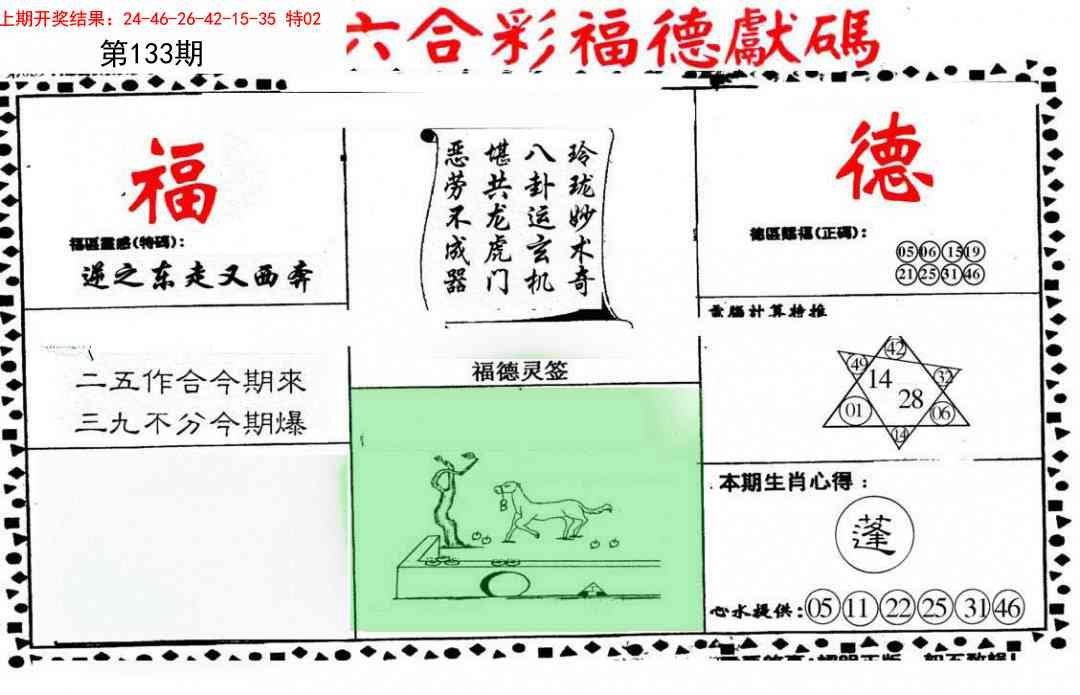 上期开奖结果：24-46-26-42-15-35 特02
第133期
六合彩福德獻碼
福
福區靈感(特碼)：
逆之东走又西奔
玲珑妙术奇
八卦运玄机
堪共龙虎门
恶劳不成器
德
德區賜福(正碼)：
05 06 15 19
21 25 31 46
二五作合今期來
三九不分今期爆
福德灵签
電腦計算特推
42
49 32
14
28
01 06
14
本期生肖心得：
蓬
心水提供：05 11 22 25 31 46